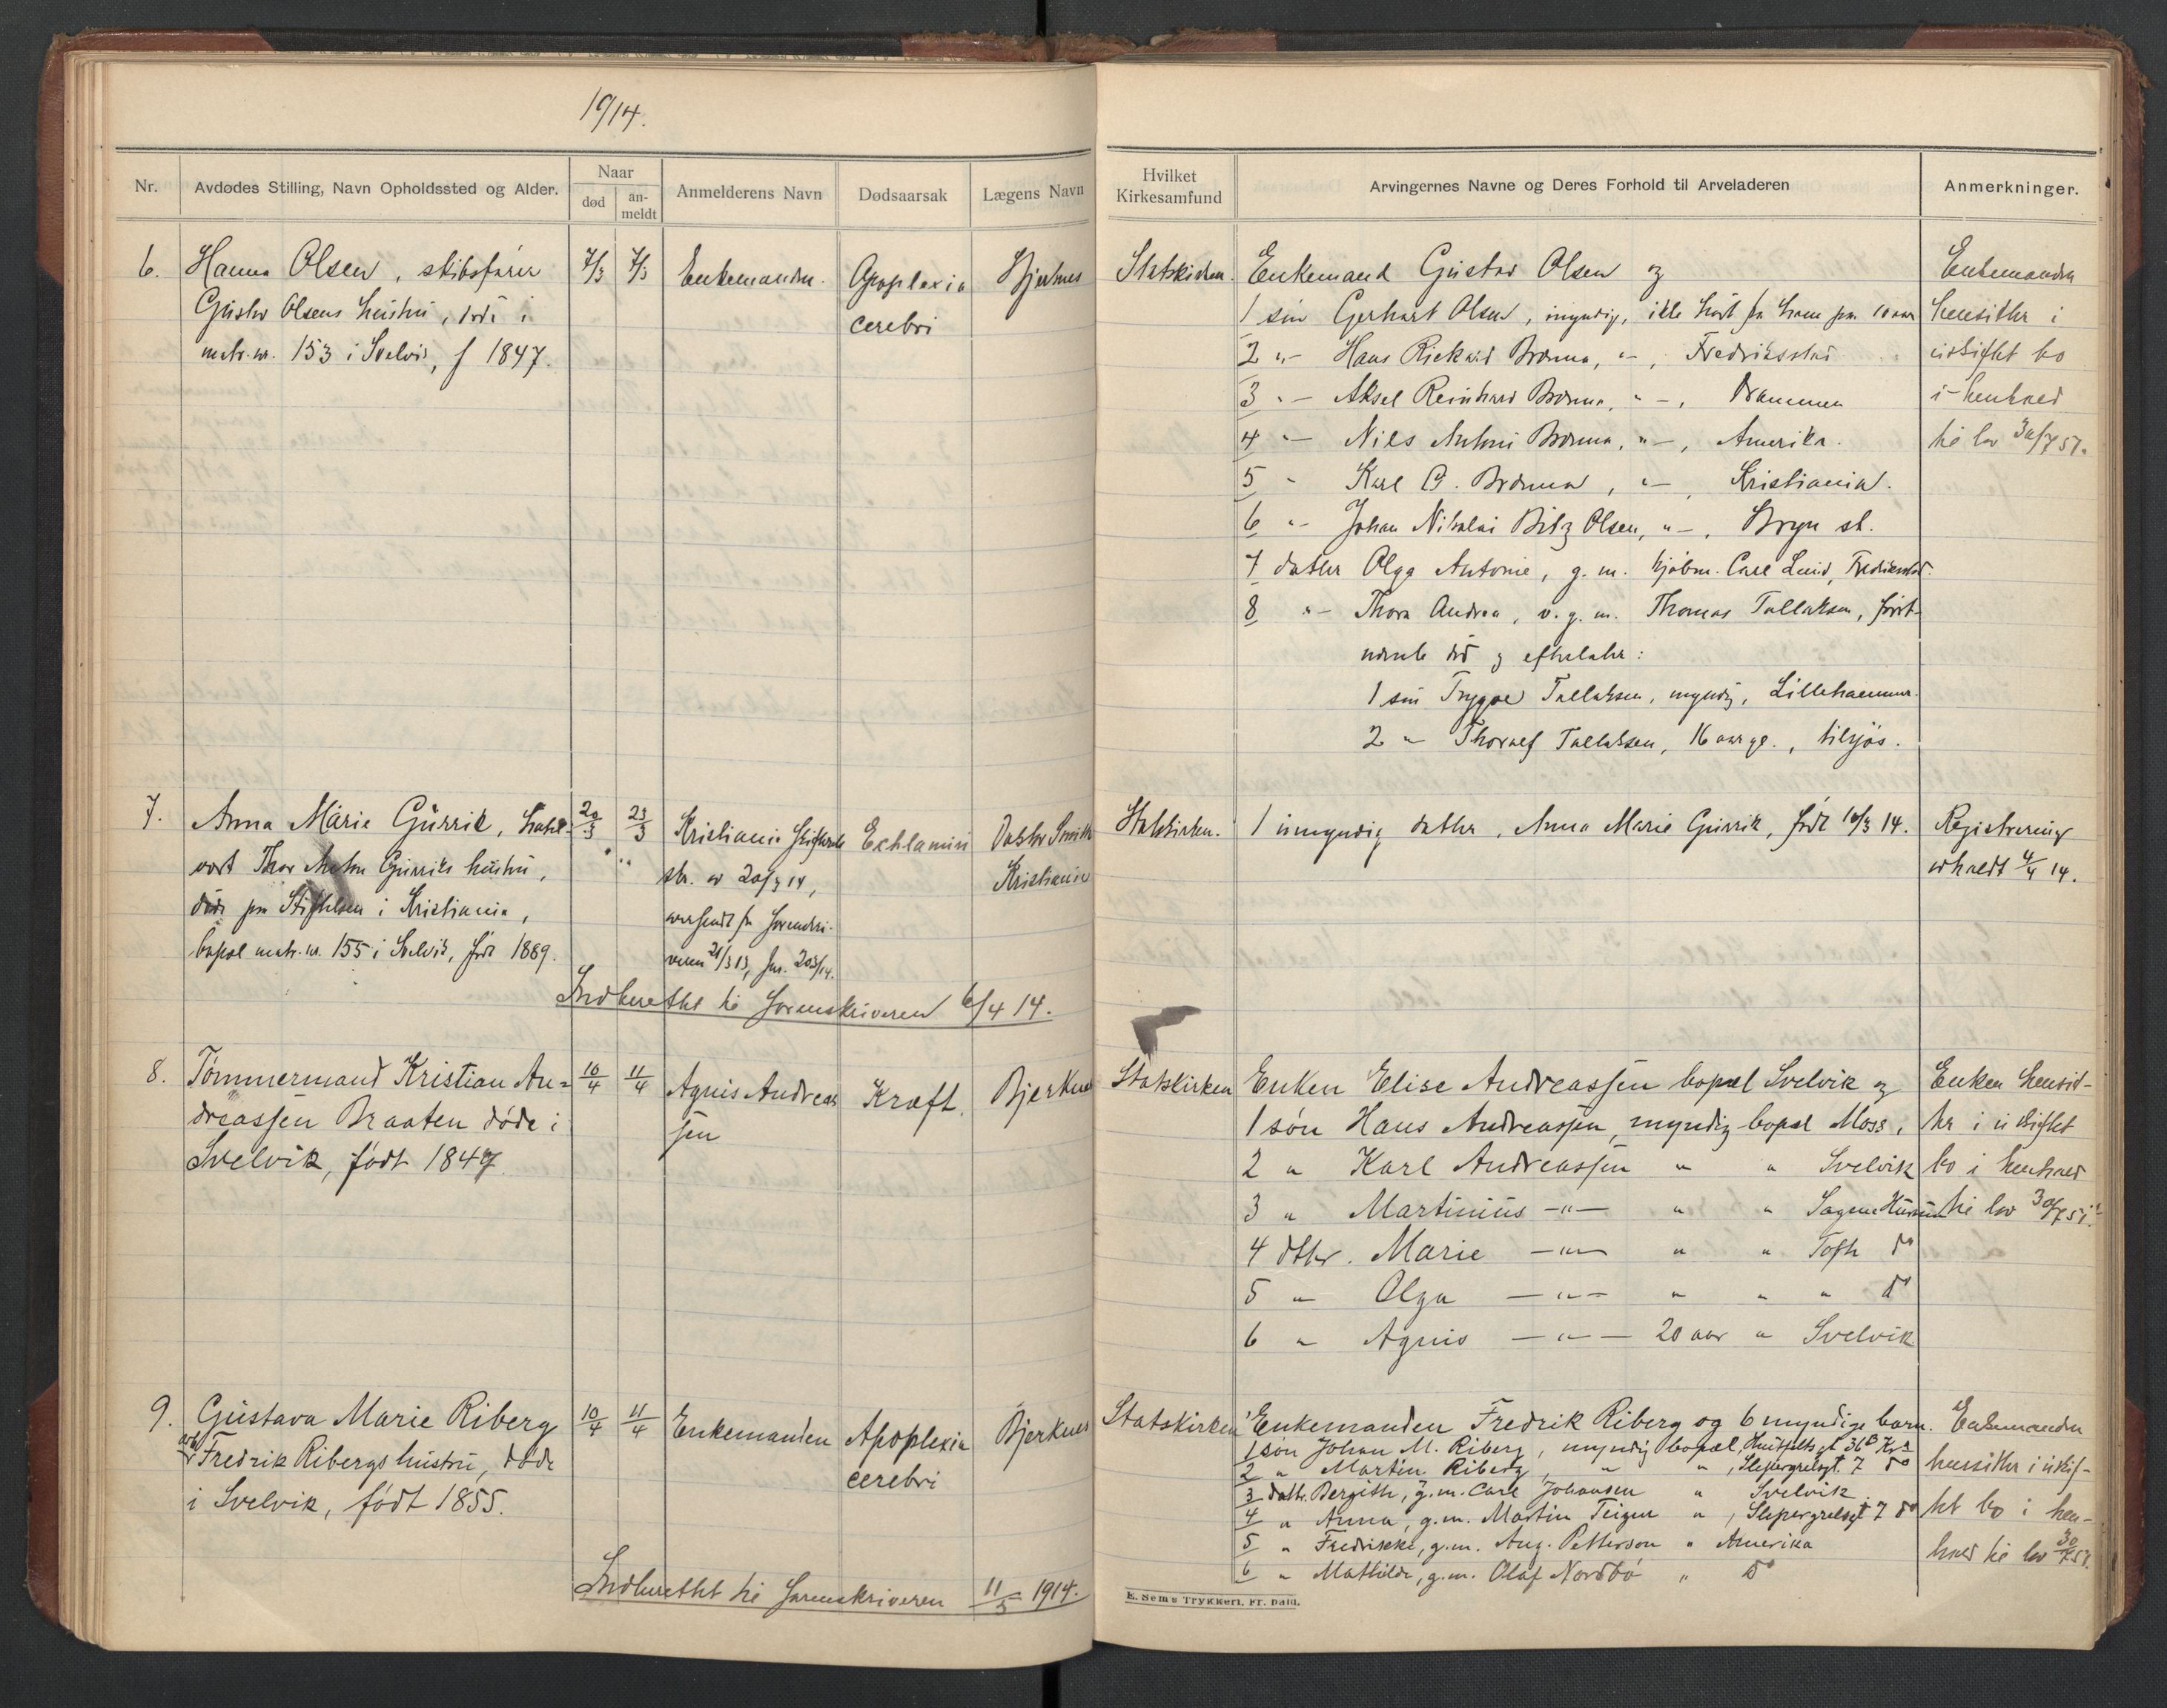 1914.
Nr. Avdødes Stilling, Navn Opholdssted og Alder. Naar død an-meldt Anmelderens Navn Dødsaarsak Lægens Navn
6. Hanna Olsen, skibsfører
Gustav Olsens hustru, døde i
matr. nr. 153 i Svelvik, f 1847.
7/3 7/3 Enkemanden. Apoplexia
cerebri
Bjerknes
7. Anna Marie Gurrik,
Thor Anton Gurriks hustru,
døde paa Stiftelsen i Kristiania,
bopæl matr. nr. 155 i Svelvik, født 1889.
20/3 23/3 Kristiania skifterets
skr. av 20/3 14,
oversendt fra sorenskri-
veren 21/3 13, jnr. 203/14.
Echlamsi
Doktor Smith
Kristiania
Indberettet til Sorenskriveren 6/4 14.
8. Tømmermand Kristian An=
dreassen Braaten døde i
Svelvik, født 1847.
10/4 11/4 Agnis Andreas
sen
Kræft. Bjerknes
9. Gustava Marie Riberg
Fredrik Ribergs hustru, døde
i Svelvik, født 1855.
10/4 11/4 Enkemanden Apoplexia
cerebri
Bjerknes
Indberettet til Sorenskriveren 11/5 1914.
Hvilket Kirkesamfund Arvingernes Navne og Deres Forhold til Arveladeren Anmerkninger.
Statskirken. Enkemand Gustav Olsen og
1 søn Gerhart Olsen, myndig, ikke hørt fra ham paa 10 aar
2 "- Hans Rickard Brømna, "-, Fredriksstad
3 "- Aksel Reinhard Brømna, "-, Drammen
4 "- Nils Antoni Brømna, "-, Amerika.
5 " Karl G. Brømna, "-, Kristiania.
6 "- Johan Nikolai Bitz Olsen, "-, Bryn st.
7 datter Olga Antonie, g. m. kjøbm. Carl Lund, Fredriksstad.
8 "- Thora Andrea, v. g. m. Thomas Tallaksen, først-
nævnte død og efterlater:
1 søn Trygve Tallaksen, myndig, Lillehammer.
2 " Thoralf Tallaksen, 16 aar gl., tilsjøs.
Enkemanden
hensitter i
uskiftet bo
i henhold
til lov 30/7 51.
Statskirken. 1 umyndig datter, Anna Marie Gurrik, født 16/3 14.
Registrering
avholdt 4/4 14.
Statskirken Enken Elise Andreassen bopæl Svelvik og
1 søn Hans Andreassen, myndig bopæl Moss.
2 " Karl Andreassen " " Svelvik
3 " Martinius -"- " " Sagene Hurum
4 dtter. Marie -"- " " Tofte do
5 " Olga -"- " " " do
6 " Agnis -"- 20 aar " Svelvik
Enken hensid-
ter i uskiftet
bo i henhold
til lov 30/7 51.
Statskirken Enkemanden Fredrik Riberg og 6 myndige barn.
1 søn Johan M. Riberg, myndig bopæl, Huitfelts gt 36B Kra
2 " Martin Riberg, " ", Slepergrelsgt. 7 do
3 datr. Bergith, g. m. Carl Johansen " Svelvik
4 " Anna, g. m. Martin Teigen ", Slepergrelsgt 7 do
5 " Fredrikke, g. m. Aug. Petterson " Amerika
6 " Mathilde, g. m. Olaf Nordbø " do
Enkemanden
hensitter i uskif-
tet bo i hen-
hold til lov 30/7 51.
E. Sem's Trykkeri, Fr. hald.